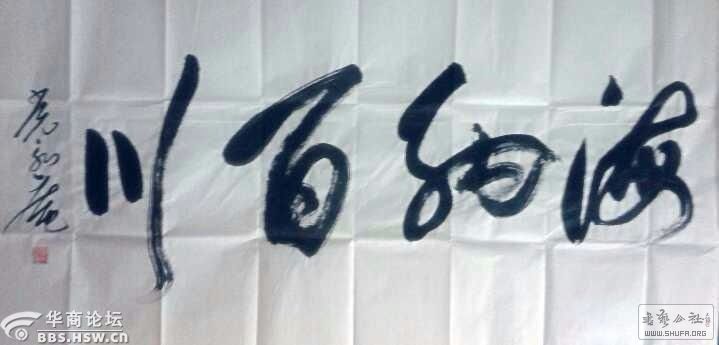 海纳百川
华商论坛
BBS.HSW.CN
书艺公社
WWW.SHUFA.ORG